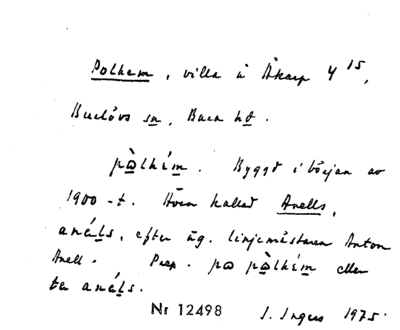 Polhem, villa å Åkarp 4¹⁵,
Burlövs sn, Bara hd.
pàlhém. Byggd i början av
1900-t. Även kallad Anells,
análs, efter äg. linjemästaren Anton
Anell. Prep. pa pàlhém eller
te análs.
Nr 12498 I. Ingers 1975.